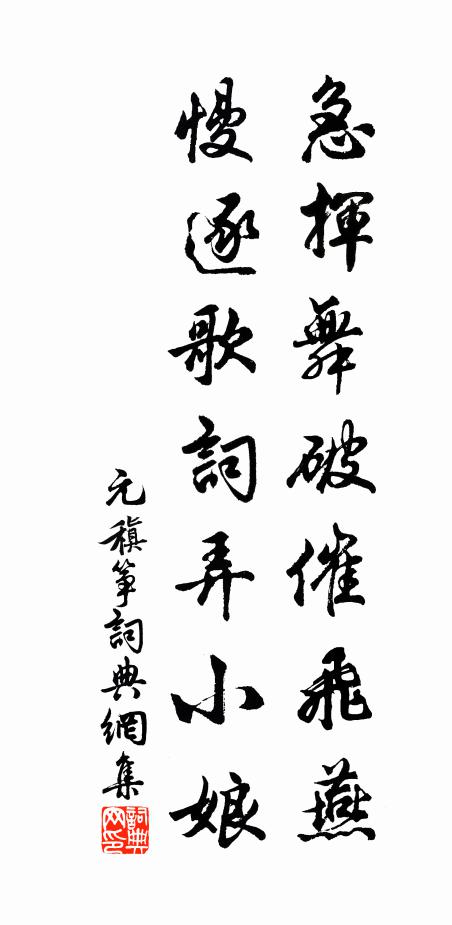 急揮舞破催飛燕
慢逐歌詞弄小娘
元稹箏詞典網集
詞典网印